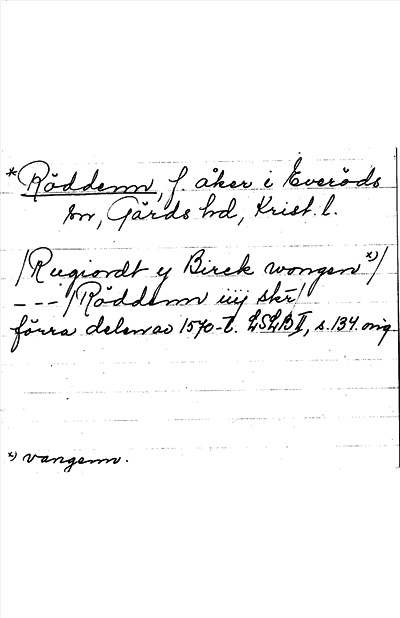 * Röddenn, f. åker i Everöds
sn, Gärds hd, Krist. l.
/Rugiordt y Birck wongen x)/
--- /Röddenn iiij skr/
förra delen av 1570-t. LSLB II, s. 134 orig.
x) vangenn.